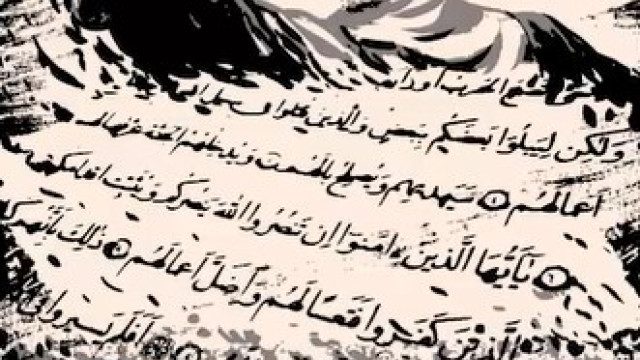 تضع الحرب أوزا
ولكن ليبلوا بعضكم ببعض والذين قتلوا في سبيل الله
أعمالهم ۝ سيهديهم ويصلح بالهم ويدخلهم الجنة عرفها لهم
۝ يأيها الذين ءامنوا إن تنصروا الله ينصركم ويثبت أقدامكم
والذين كفروا فتعسا لهم وأضل أعمالهم ۝ ذلك بأنهم كر
أفلم يسيروا في